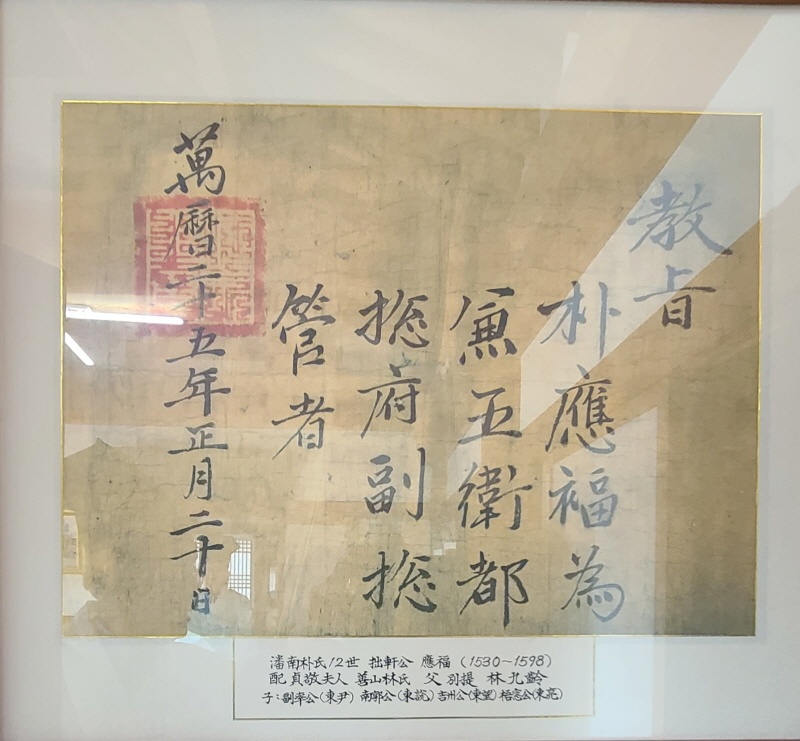 教旨
朴應福為
兼五衛都
摠府副摠
管者
萬曆二十五年正月二十日
潘南朴氏12世 拙軒公 應福 (1530~1598)
配 貞敬夫人 善山林氏 父 別提 林九齡
子:副率公(東尹) 南郭公(東說) 吉州公(東望) 梧窓公(東亮)